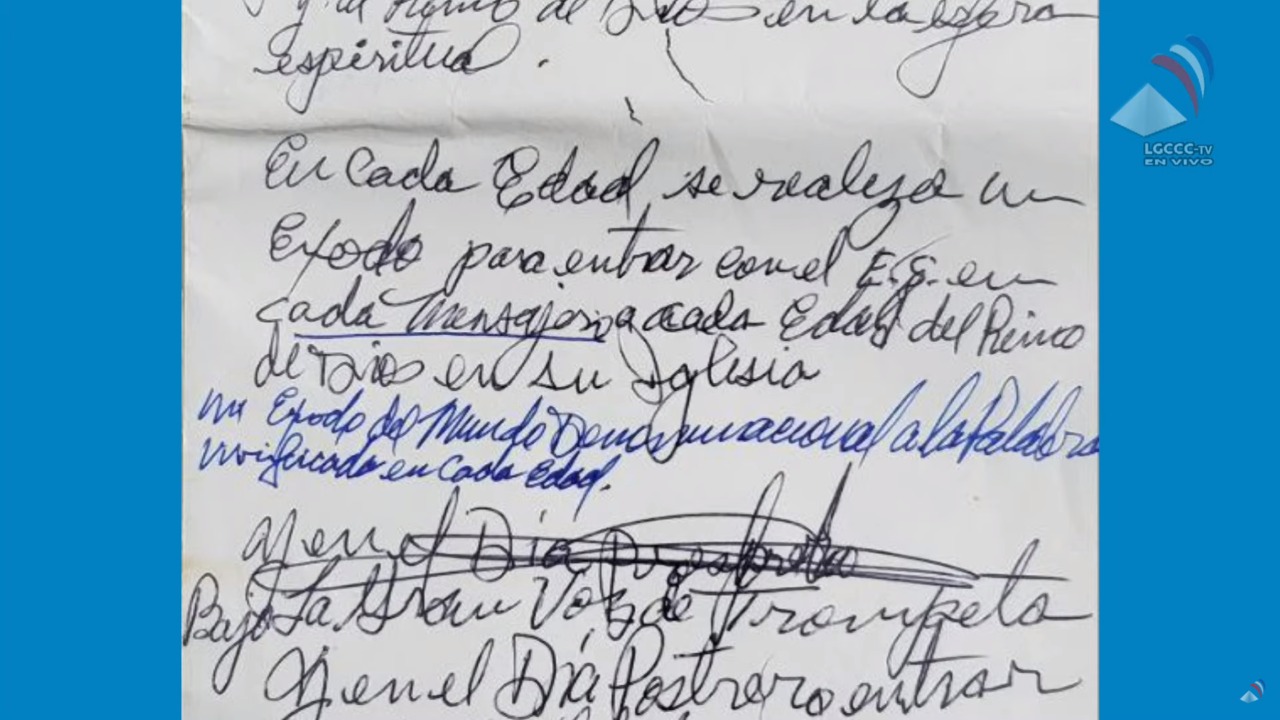 y el Reino de Dios en la esfera
espiritual.
En cada Edad se realiza un
Exodo para entrar con el E.S. en
cada Mensajero a cada Edad del Reino
de Dios en su Iglesia
un Exodo del Mundo Denominacional a la Palabra
vivificada en cada Edad.
Y en el Día
Bajo La Gran Voz de Trompeta
Y en el Día Postrero entrar
LGCCC-TV
EN VIVO